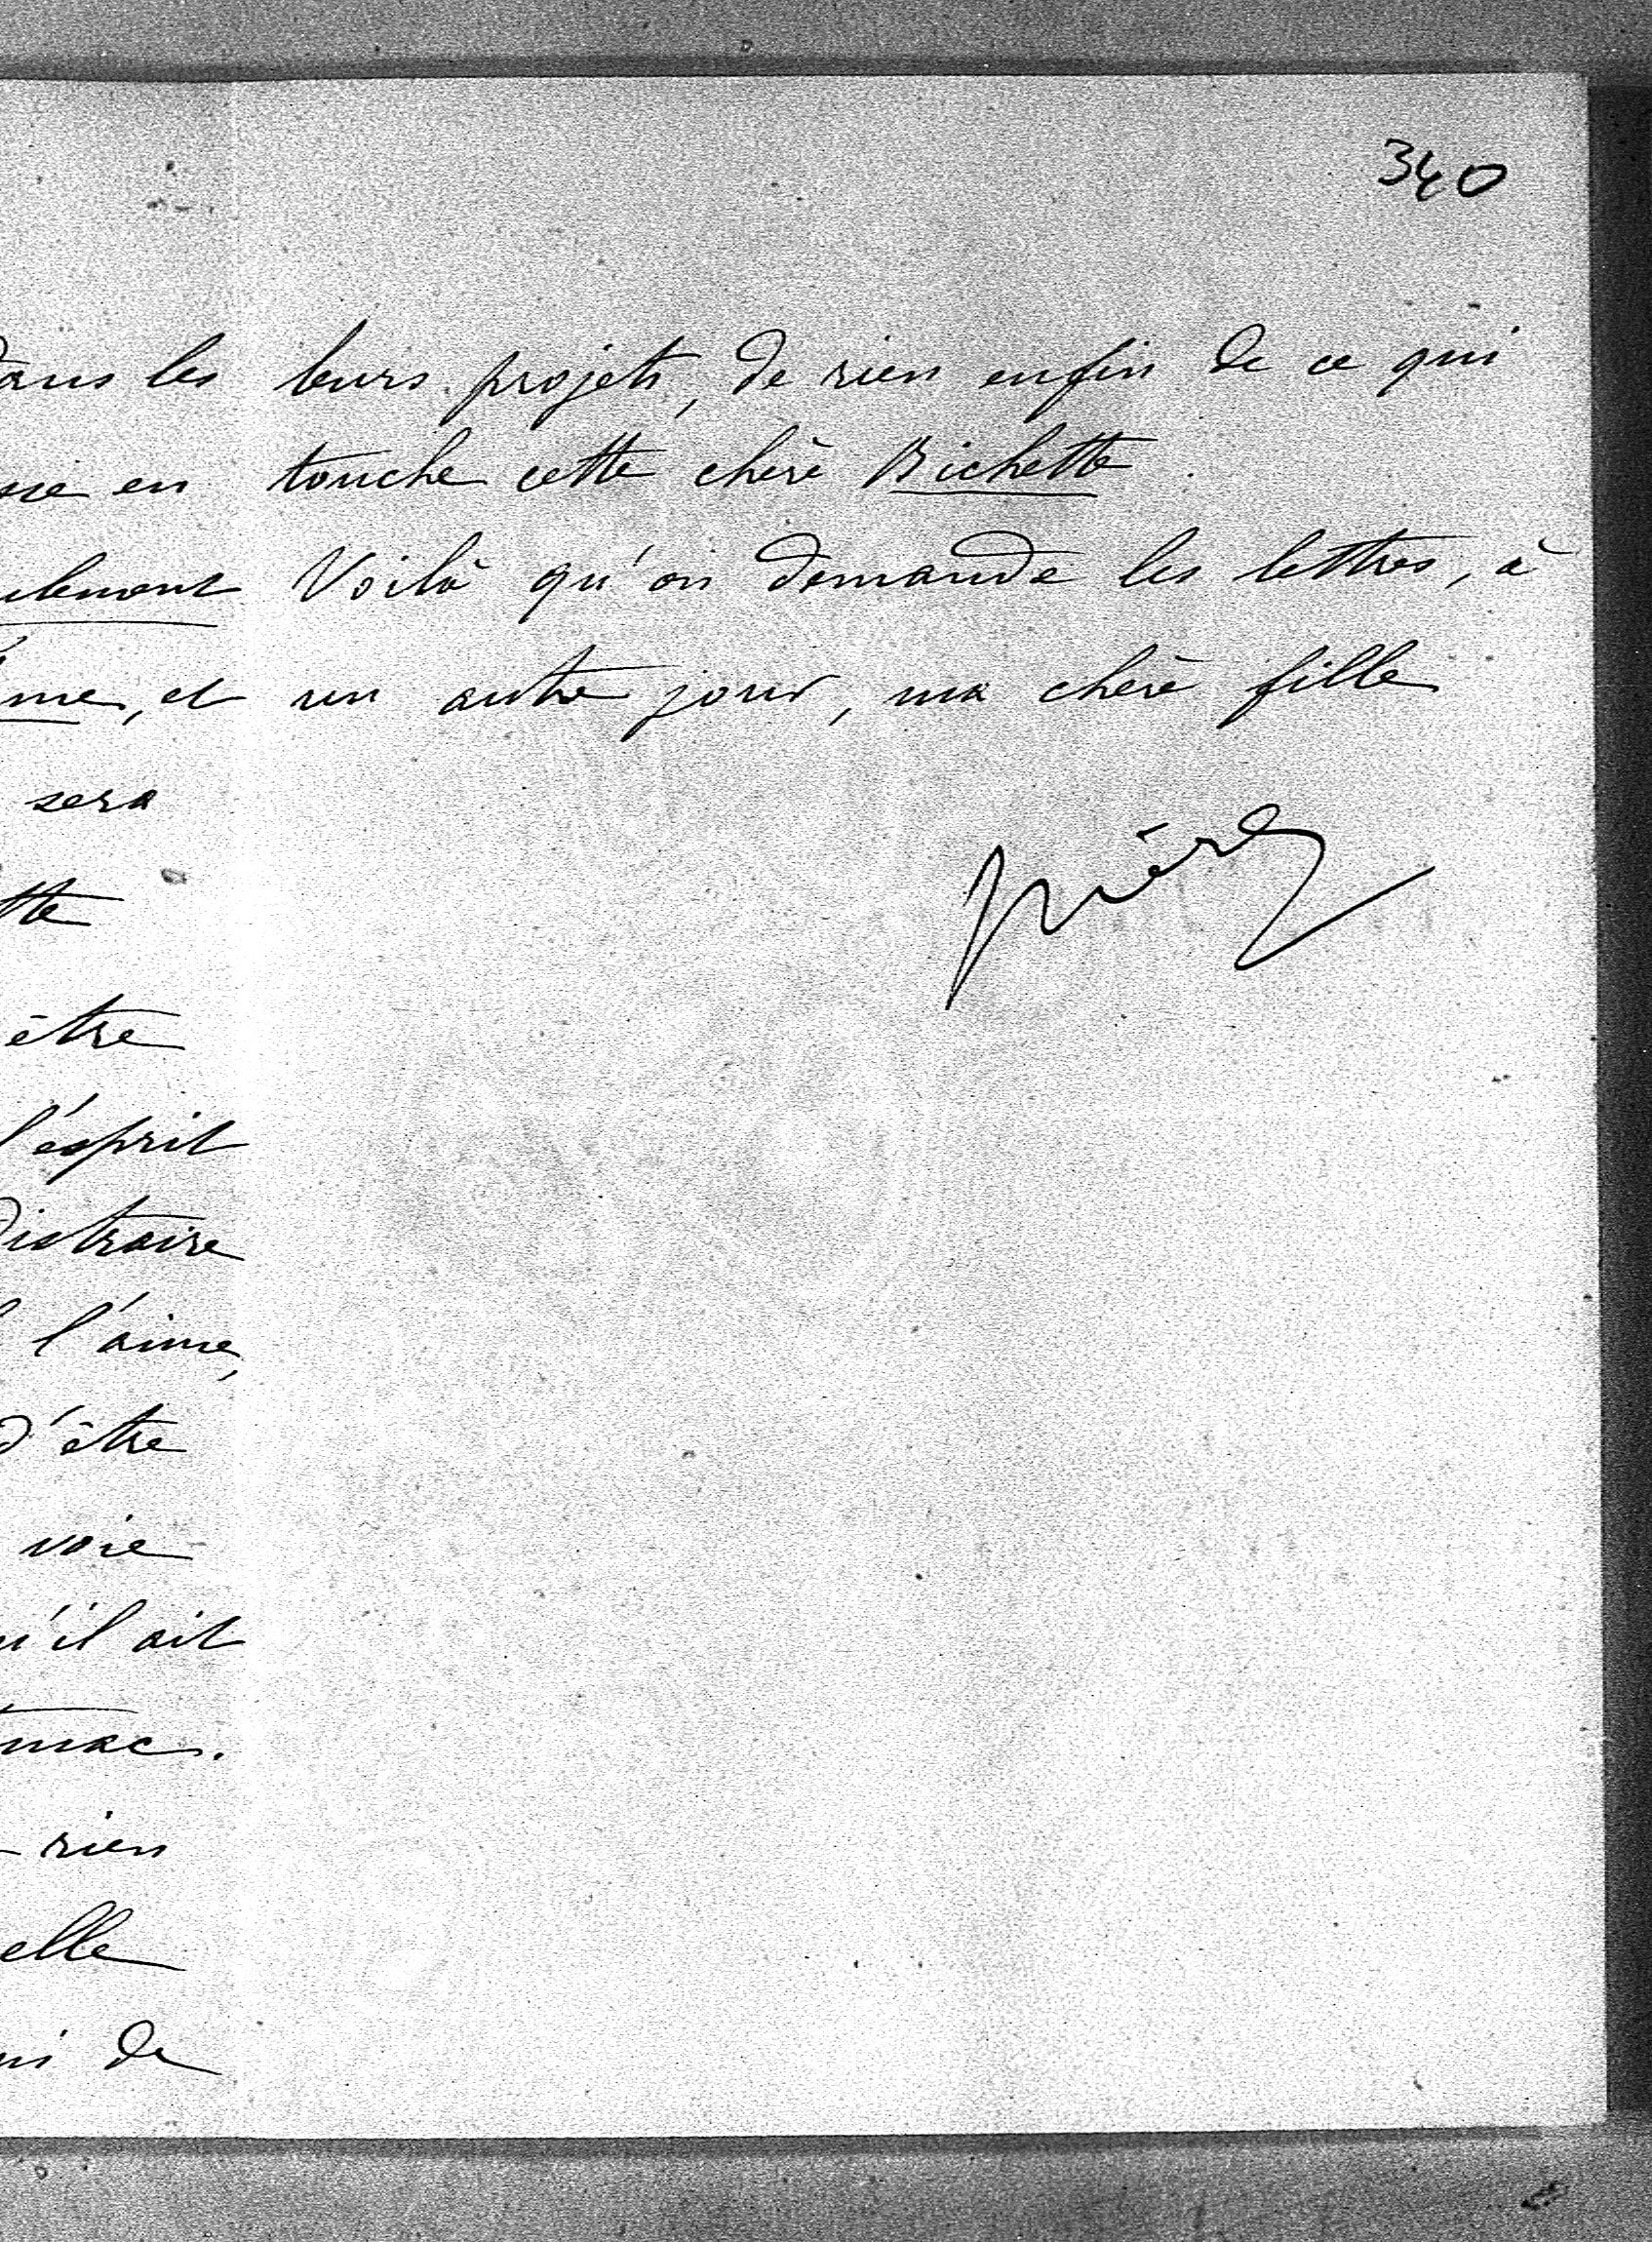 340
dans les
sse en
ulement
me, et
sera
tte
être
l'ésprit
distraire
l'aime,
d'être
voie
u'il ait
mac.
rien
elle
ni de
leurs projets, de rien enfin de ce qui
touche cette chère Bichette.
Voilà qu'on demande les lettres, à
un autre jour, ma chère fille